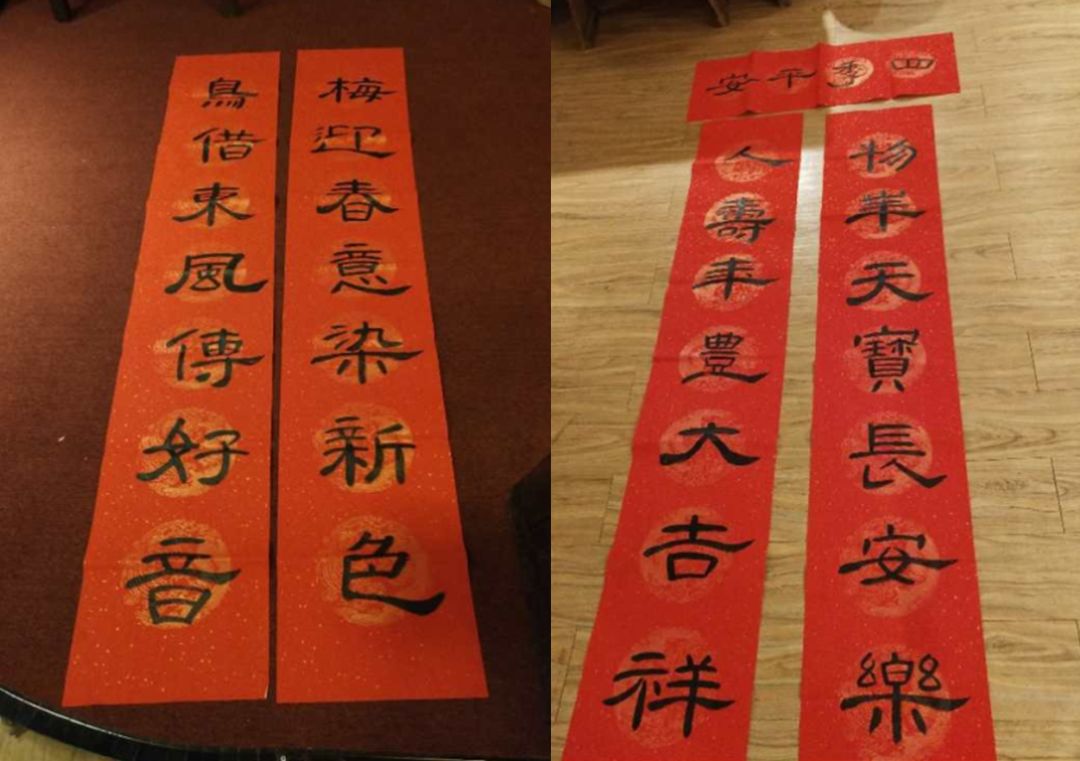 梅迎春意染新色
鳥借東風傳好音
四季平安
物華天寶長安樂
人壽年豊大吉祥